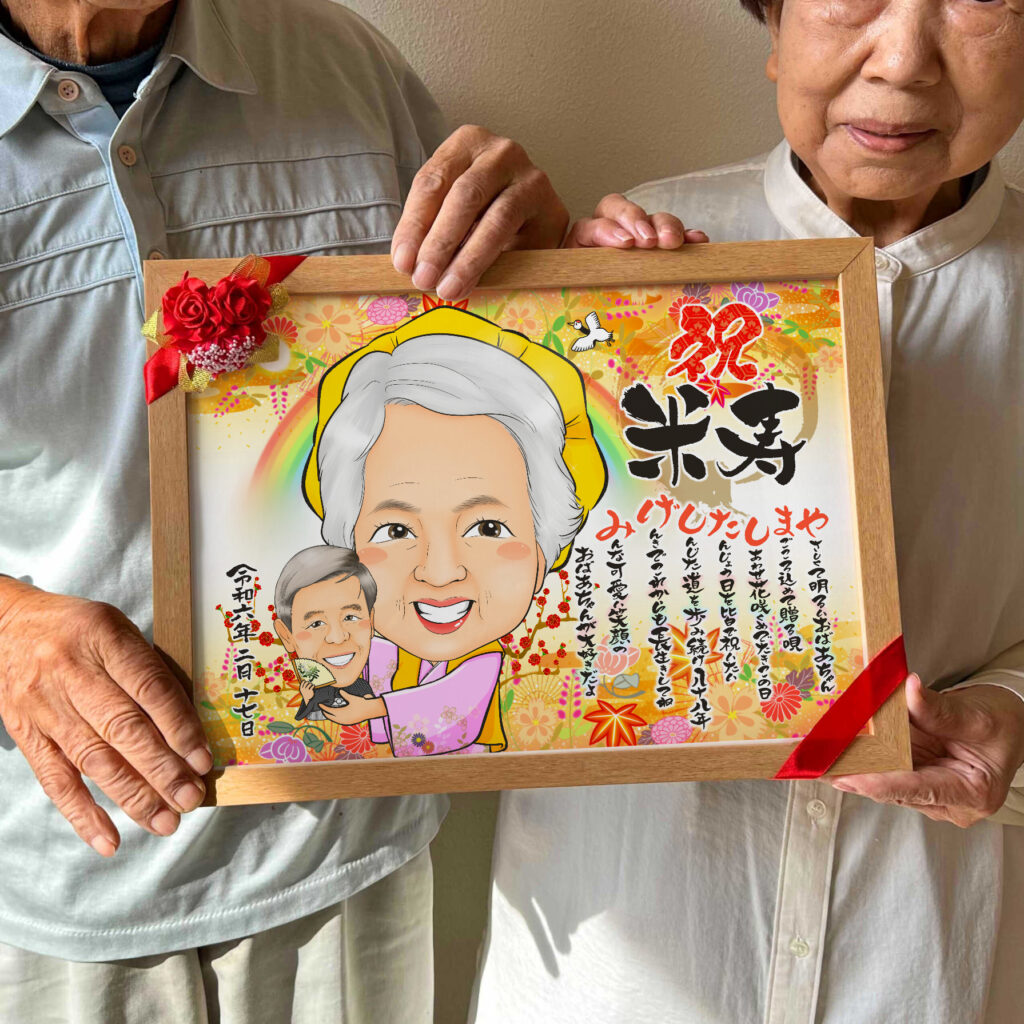 祝
米寿
やさしくて明るいおばあちゃん
まごころ込めて贈る唄
しあわせ花咲くめでたきこの日
たんじょう日を皆で祝
しんじた道を歩み続け八十八年
げんきでこれからも長生きしてね
みんな可愛い笑顔の
おばあちゃんが大好きだよ
令和六年二月十七日